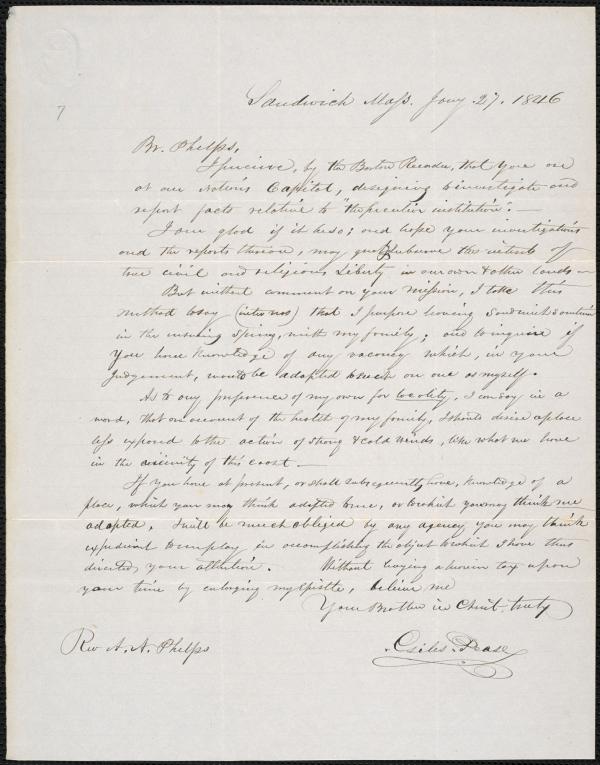 7
Sandwich Mass. Jany. 27. 1846
Br. Phelps,
I perceive, by the Boston Recorder, that you are
at our Nation's Capitol, designing to investigate and
report facts relative to "the peculiar institution". —
I am glad if it be so; and hope your investigations
and the reports thereon, may subserve the interests of
true civil and religious Liberty in our own & other lands —
But without comment on your mission, I take this
method to say (inter nos) that I purpose leaving Sandwich
in the ensuing Spring, with my family; and to inquire if
you have knowledge of any vacancy which, in your
Judgement, would be adapted to such an one as myself.
As to any preference of my own for locality, I can say in a
word, that on account of the health of my family, I should desire a place
less exposed to the action of strong & cold winds, like what we have
in the vicinity of this coast. —
If you have at present, or shall subsequently have, knowledge of a
place, which you may think adapted to me, or to which you may think me
adapted, I will be much obliged by any agency you may think
expedient to employ in accomplishing the object to which I have thus
directed your attention. Without laying a heavier tax upon
your time by enlarging my Epistle, believe me
Your Brother in Christ truly
Giles Pease
Rev A. A. Phelps